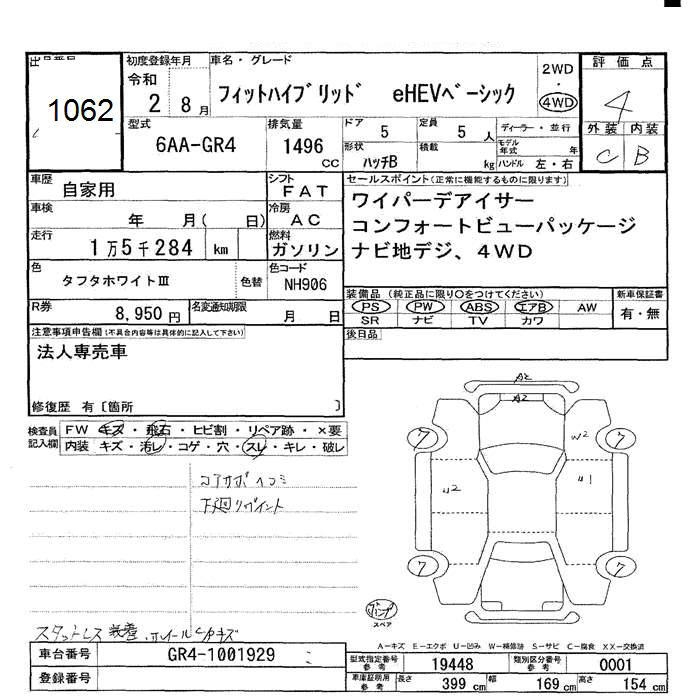 出品番号 初度登録年月 車名・グレード 2WD ・ 4WD 評価点
1062 令和 2 8月 フィットハイブリッド eHEVベーシック 4
型式 排気量 ドア 定員 ディーラー・並行 外装 内装
6AA-GR4 1496 CC 5 5 人 モデル年式 年 C B
形状 ハッチB 積載 kg ハンドル 左・右
車歴 自家用 シフト FAT セールスポイント(正常に機能するものに限ります)
車検 年 月( 日) 冷房 AC ワイパーデアイサー
コンフォートビューパッケージ
走行 1万5千284 km 燃料 ガソリン ナビ地デジ、4WD
色 タフタホワイトⅢ 色替 色コード NH906
装備品(純正品に限り○をつけてください) 新車保証書
R券 8,950円 名変通知期限 月 日 PS PW ABS エアB AW 有・無
SR ナビ TV カワ
注意事項申告欄(不具合内容等は具体的に記入して下さい) 後日品
法人専売車
修復歴 有〔箇所 〕
検査員記入欄 FW キズ・飛石・ヒビ割・リペア跡・×要
内装 キズ・汚レ・コゲ・穴・スレ・キレ・破レ
A2
A2
7 W2 7
U2 U1
7 7
コアサポヘコミ
下廻リペイント
スペア
スタットレス装着、ホイールCPキズ
A-キズ E-エクボ U-凹み W-補修跡 S-サビ C-腐食 XX-交換済
車台番号 GR4-1001929 型式指定番号 参考 19448 類別区分番号 参考 0001
登録番号 車庫証明用 参考 長さ 399 cm 幅 169 cm 高さ 154 cm